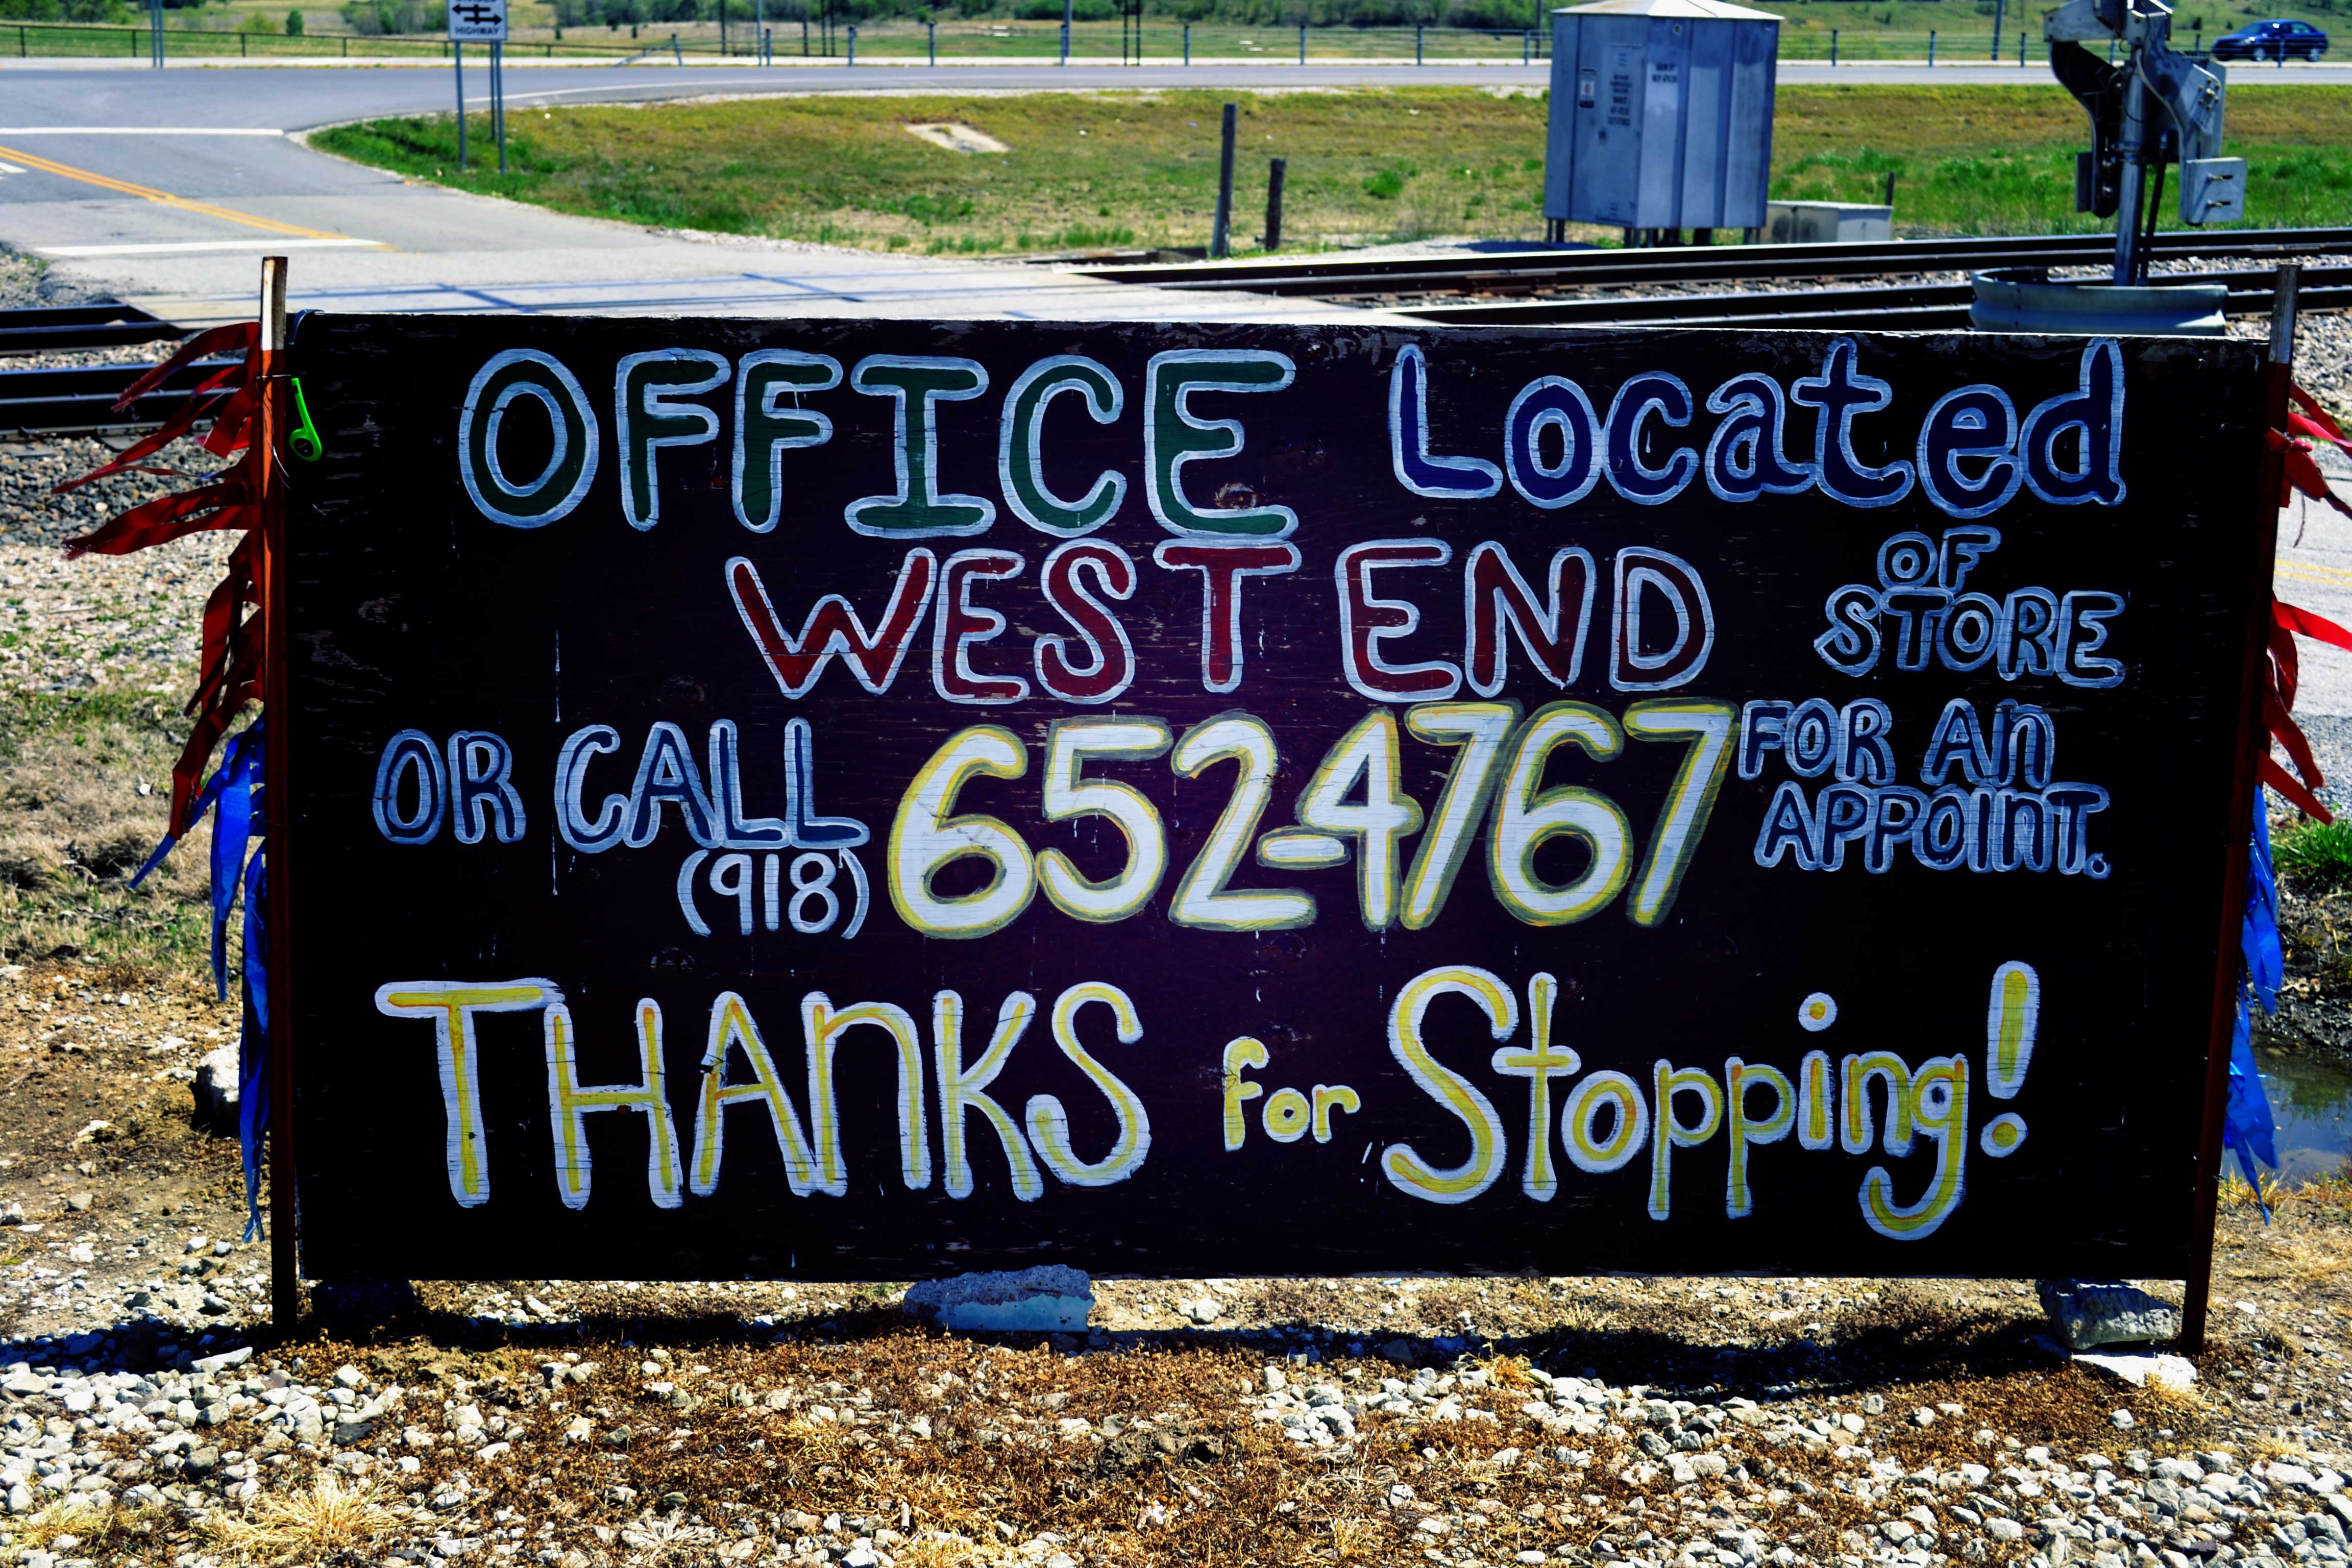 HIGHWAY
OFFICE Located
WEST END OF STORE
OR CALL (918) 652-4767 FOR An APPOINT.
THAnKS for Stopping!